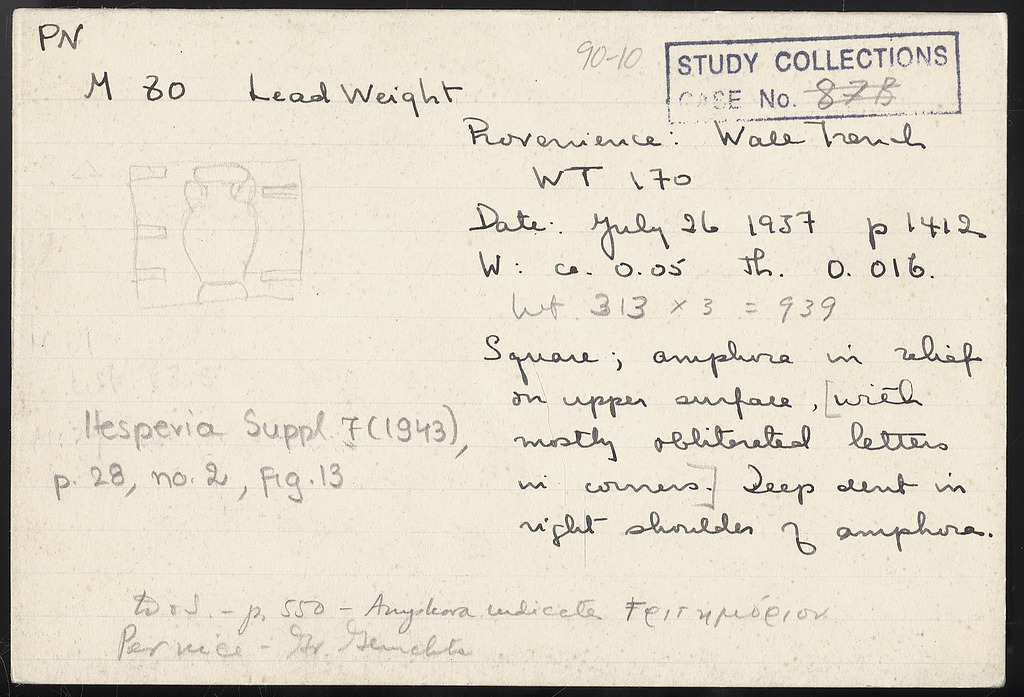 PN
90-10
STUDY COLLECTIONS
CASE No. 87B
M 80 Lead Weight
Provenience: Wall Trench
WT 170
Date: July 26 1937 p 1412
W: ca. 0.05 Th. 0.016.
Wt 313 × 3 = 939
Square; amphora in relief
on upper surface, [with
mostly obliterated letters
in corners.] Deep dent in
right shoulder of amphora.
Hesperia Suppl. 7 (1943),
p. 28, no. 2, Fig. 13
D & S. - p. 550 - Amphora indicate τριτημόριον
Pernice - Gr. Gewichte